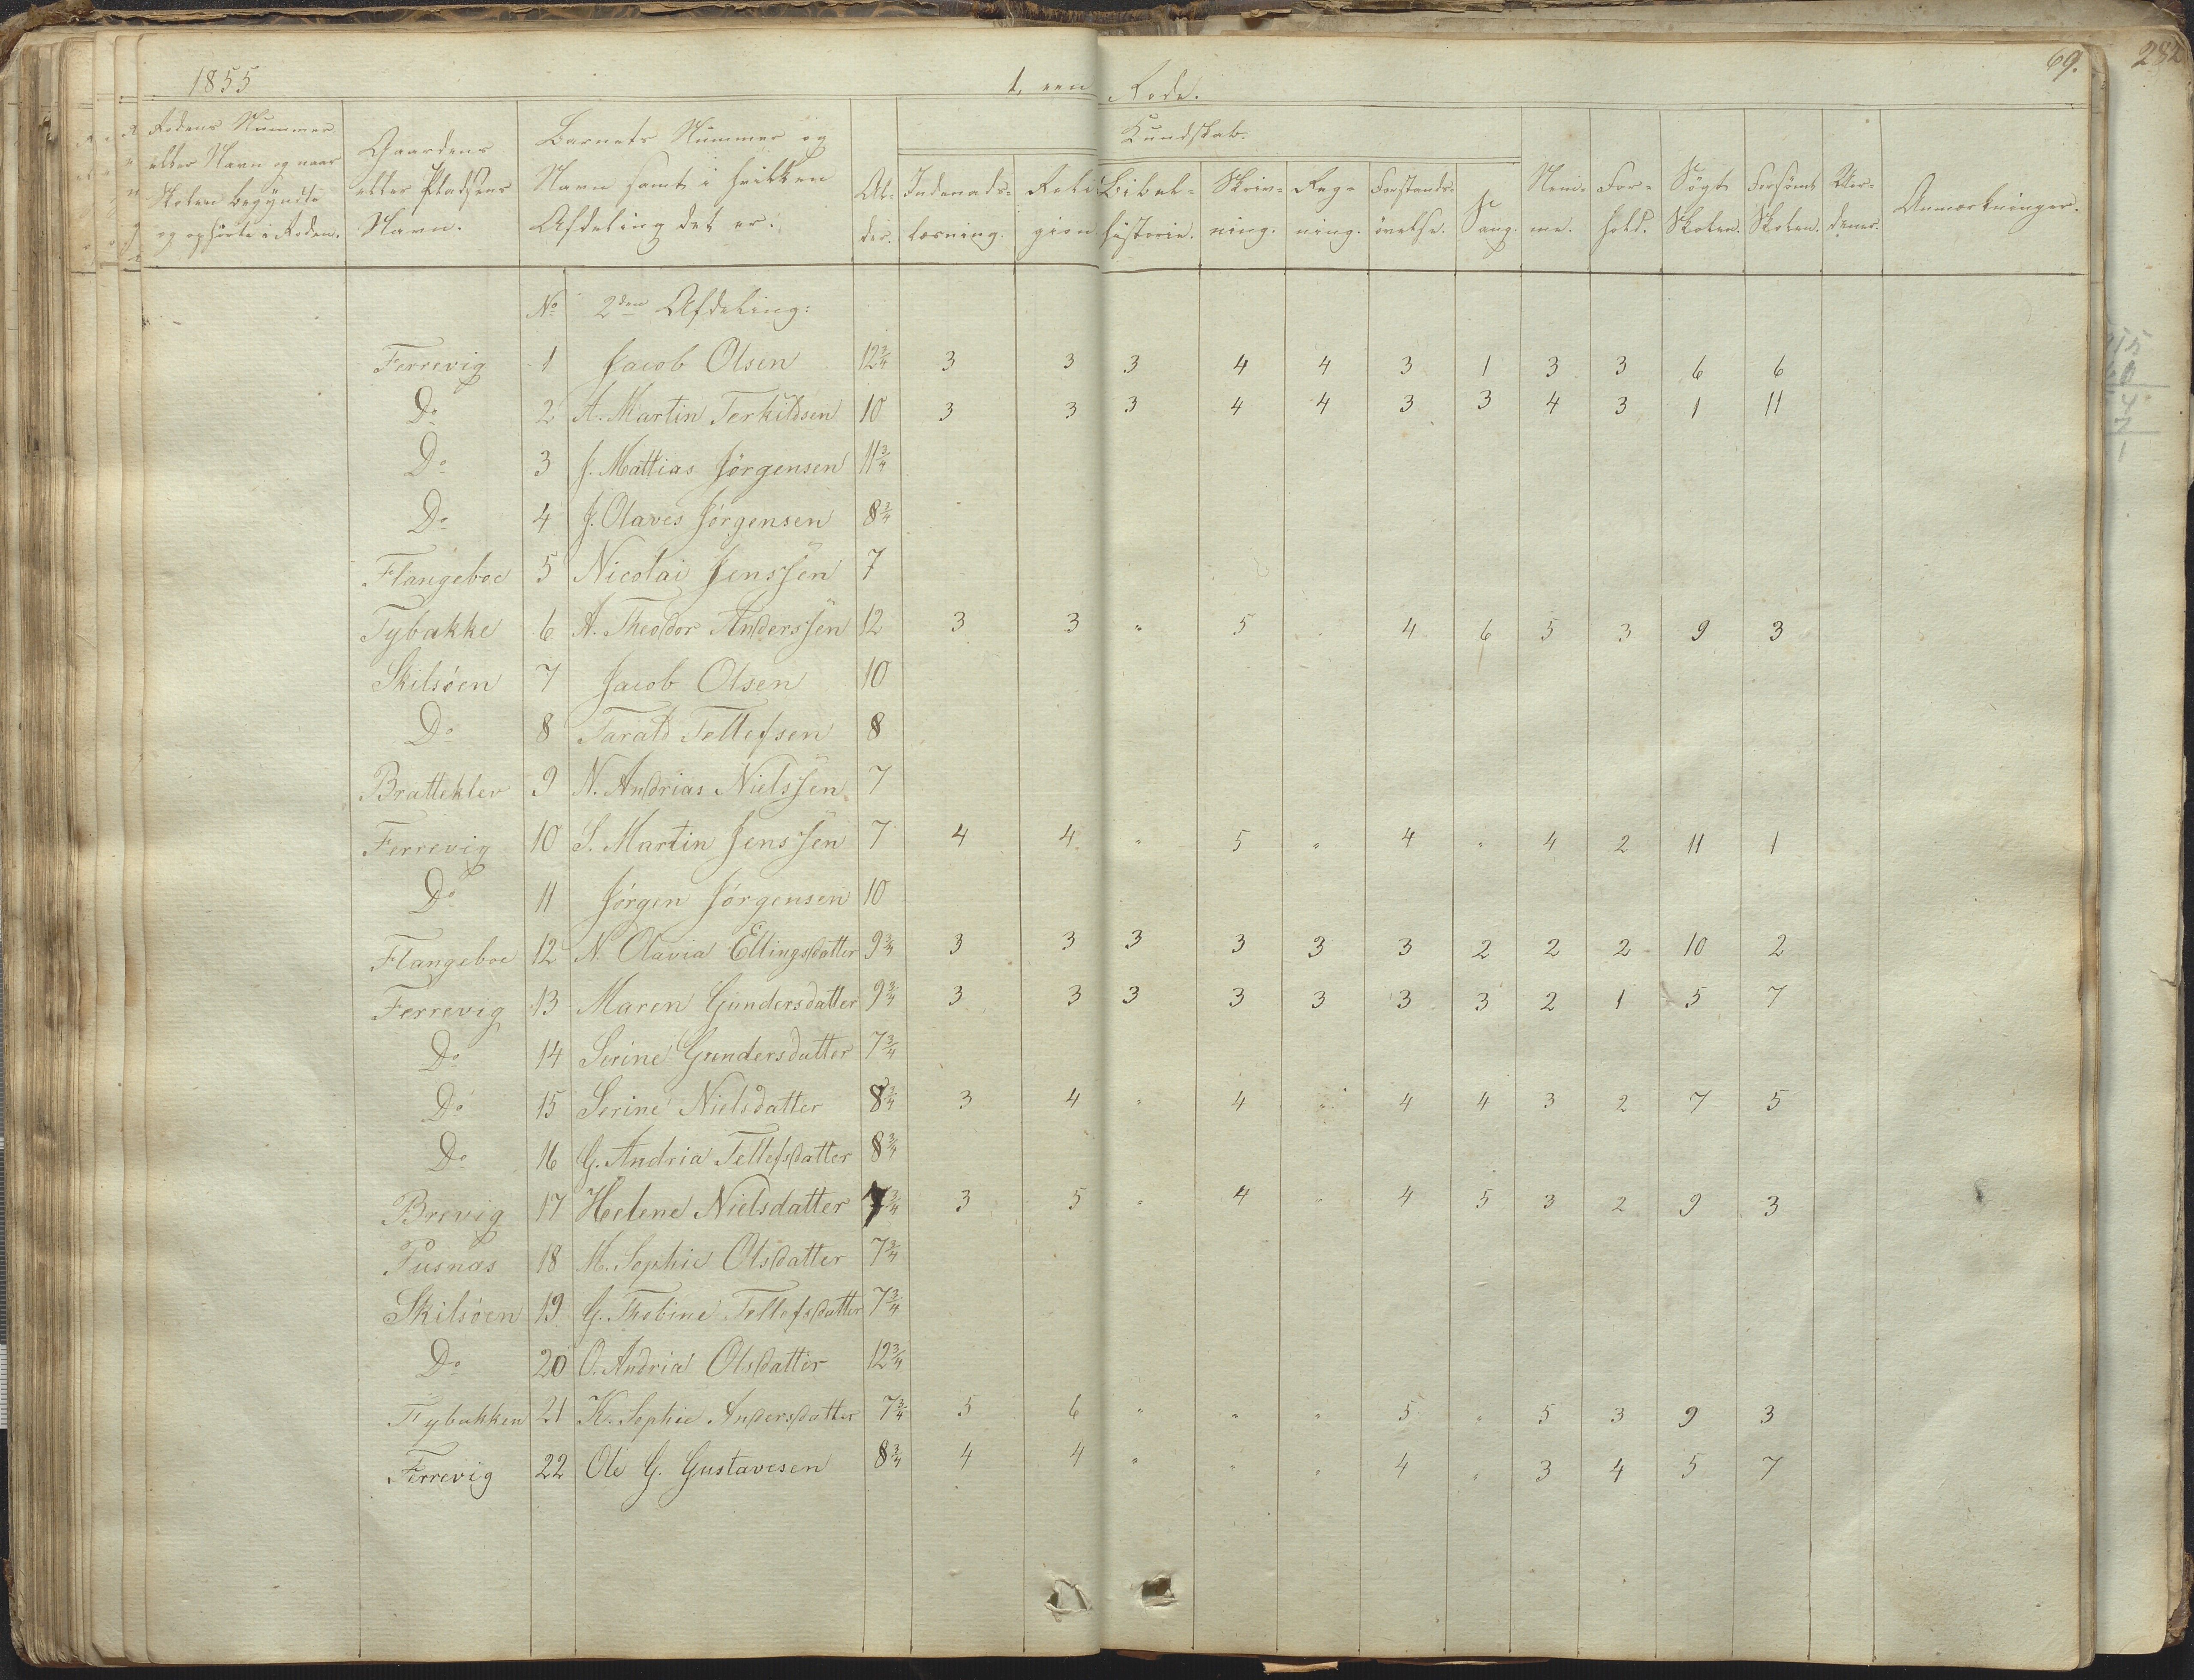 1855 1, een Rode. 69. 282
Rodens Nummer eller Navn og naar Skolen begyndte og ophørte i Roden.
Gaardens eller Pladsens Navn.
Barnets Nummer og Navn samt i hvilken Afdeling det er.
Al-der.
Kundskab.
Indenads-læsning.
Reli-gion
Bibel-historie.
Skriv-ning.
Reg-ning.
Forstands-øvelse.
Sang.
Nem-me.
For-hold.
Søgt Skolen.
Forsømt Skolen.
Anmærkninger.
No 2den Afdeling:
Ferrevig 1 Jacob Olsen 12 3/4 3 3 3 4 4 3 1 3 3 6 6
Do 2 A. Martin Terkildsen 10 3 3 3 4 4 3 3 4 3 1 11
Do 3 J. Mattias Jörgensen 11 3/4
Do 4 J. Olaves Jörgensen 8 3/4
Flangeboe 5 Nicolai Jenssen 7
Tybakke 6 A. Theodor Anderssen 12 3 3 " 5 " 4 6 5 3 9 3
Skilsöen 7 Jacob Olsen 10
Do 8 Tarald Tellefsen 8
Bratteklev 9 N. Andrias Nielssen 7
Ferrevig 10 S. Martin Jenssen 7 4 4 " 5 " 4 " 4 2 11 1
Do 11 Jörgen Jörgensen 10
Flangeboe 12 N. Olavia Ellingsdatter 9 3/4 3 3 3 3 3 3 2 2 2 10 2
Ferrevig 13 Maren Gundersdatter 9 3/4 3 3 3 3 3 3 3 2 1 5 7
Do 14 Serine Gundersdatter 7 3/4
Do 15 Serine Nielsdatter 8 3/4 3 4 " 4 " 4 4 3 2 7 5
Do 16 G. Andria Tellefsdatter 8 3/4
Brevig 17 Helene Nielsdatter 7 3/4 3 5 " 4 " 4 5 3 2 9 3
Pusnæs 18 M. Sophie Olsdatter 7 3/4
Skilsöen 19 G. Thobine Tellefsdatter 7 3/4
Do 20 O. Andria Olsdatter 12 3/4
Tybakken 21 K. Sophie Andersdatter 7 3/4 5 6 " " " 5 " 5 3 9 3
Ferrevig 22 Ole G. Gustavesen 8 3/4 4 4 " " " 4 " 3 4 5 7